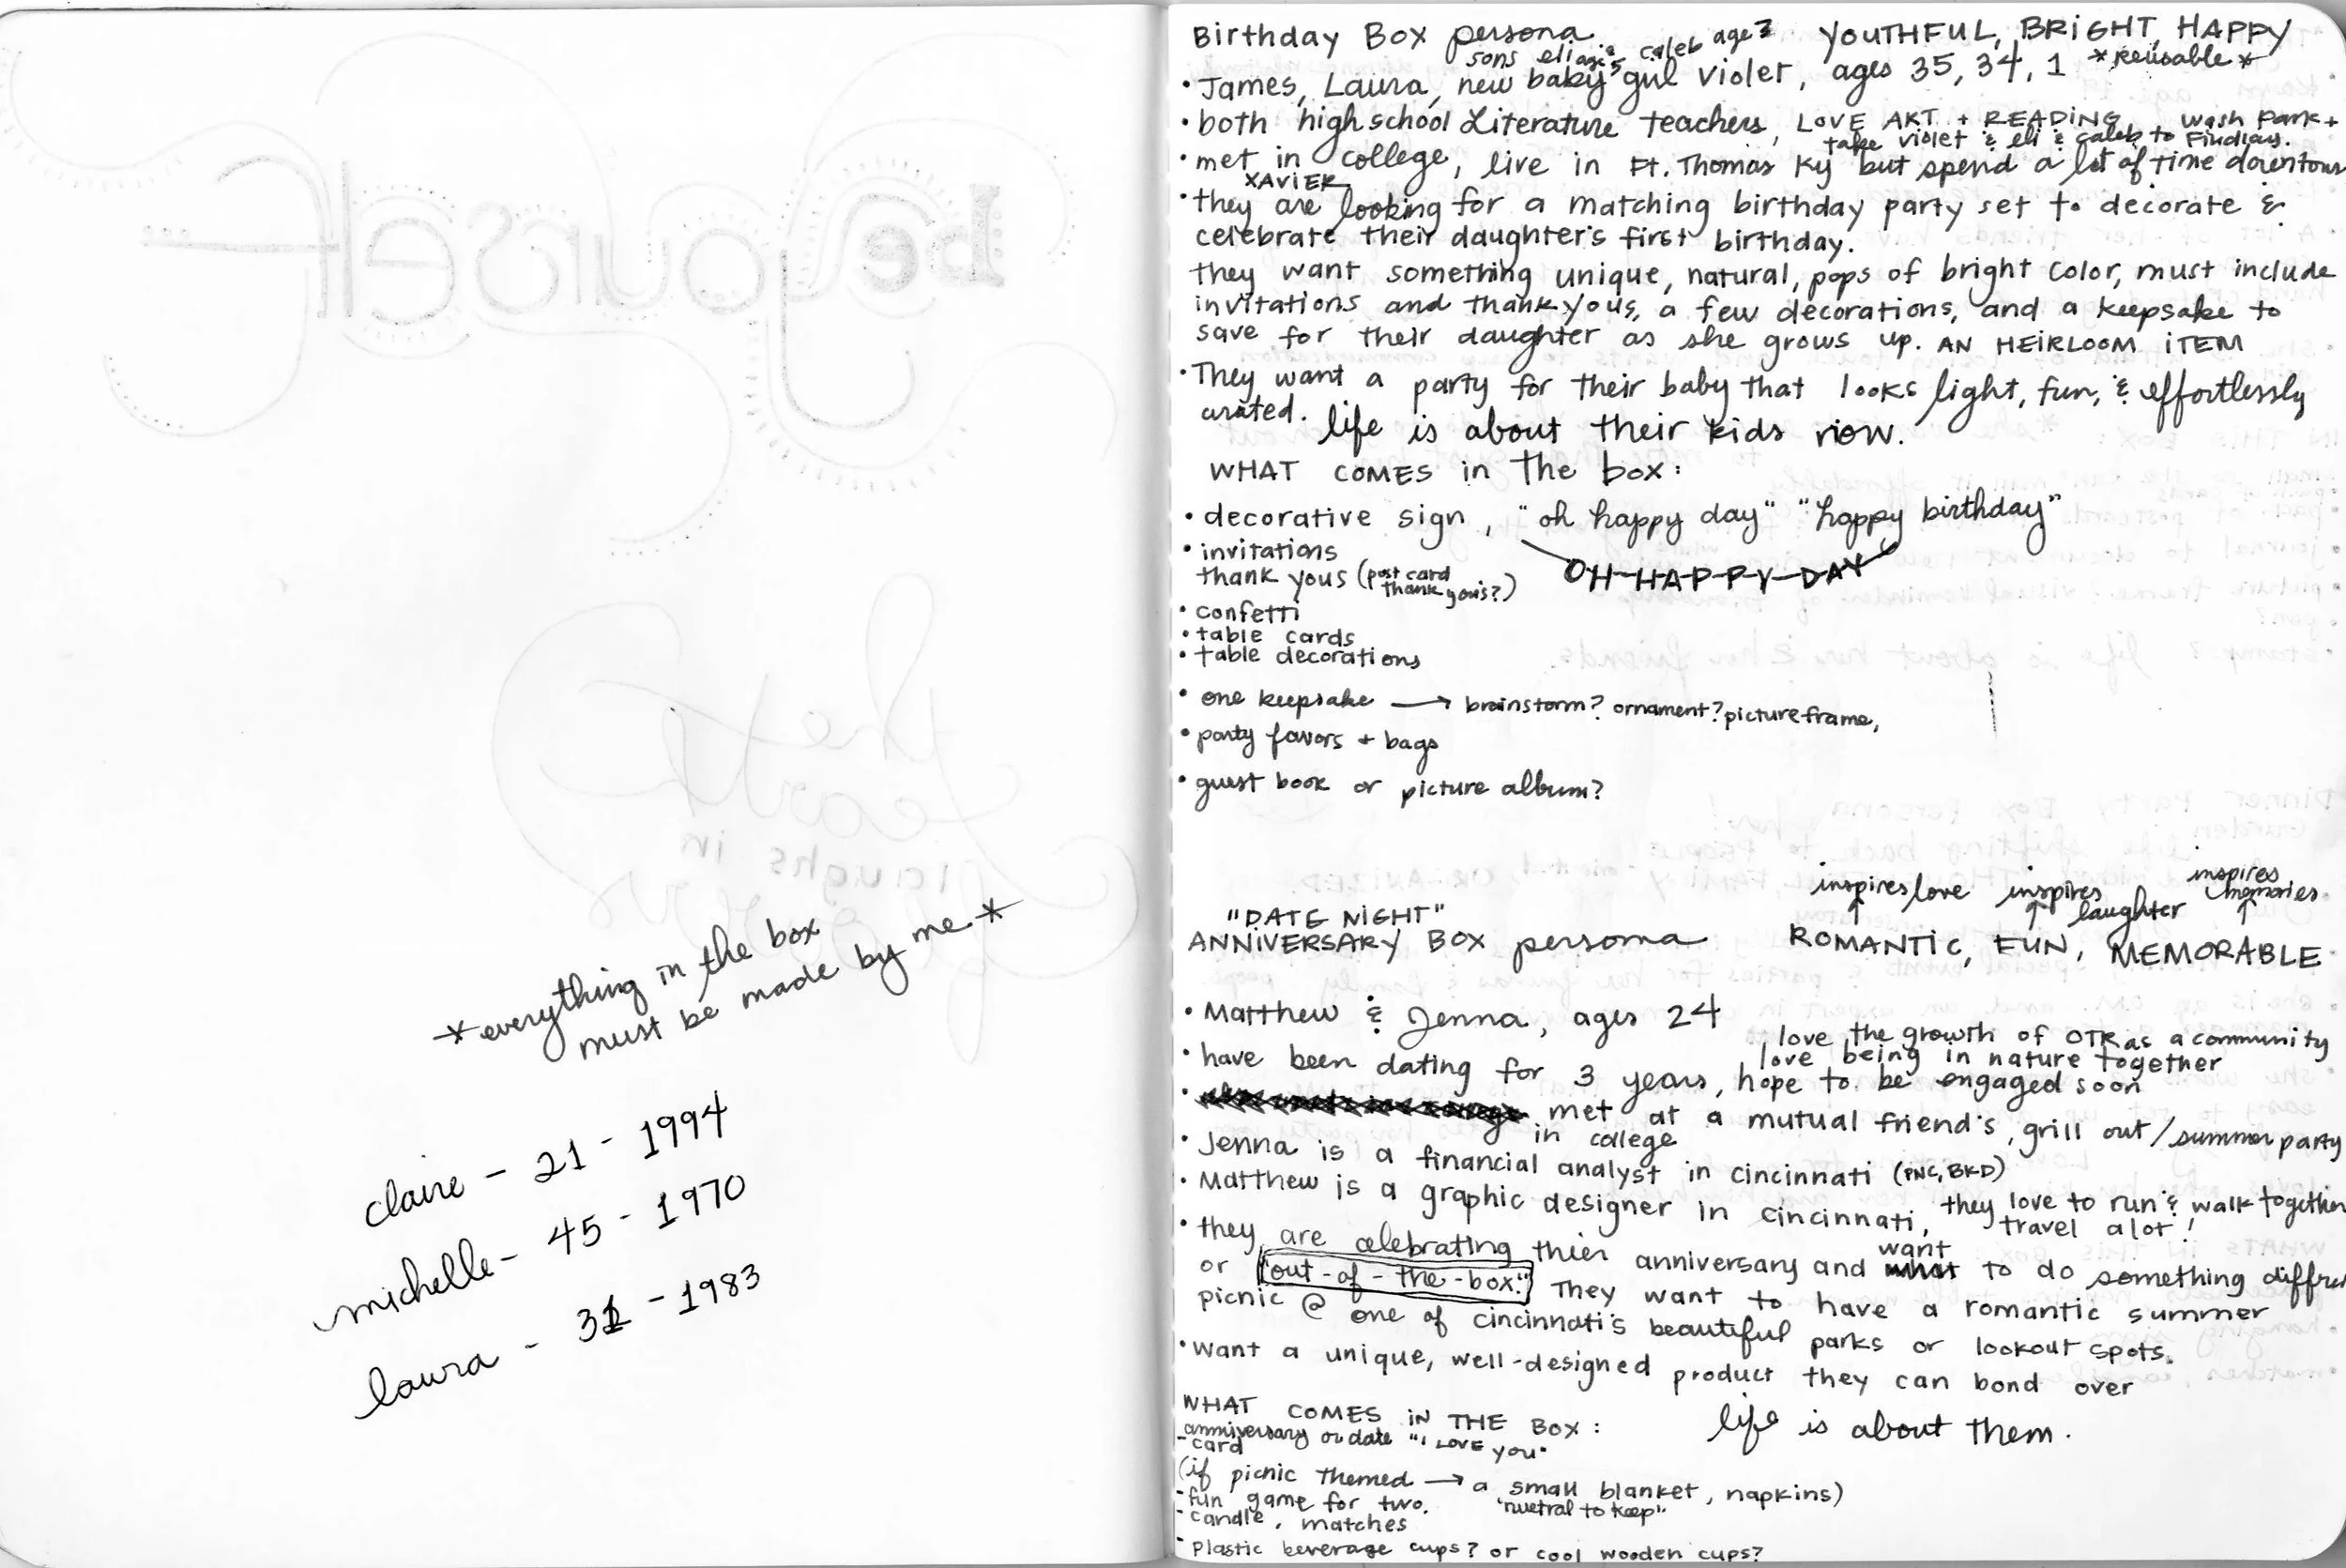 be yourself
the
earth
laughs in
flowers
*everything in the box
must be made by me*
claire - 21 - 1994
michelle - 45 - 1970
laura - 31 - 1983
Birthday Box persona YOUTHFUL, BRIGHT, HAPPY
sons eli age 5 & caleb age 3 *reusable*
• James, Laura, new baby girl violet, ages 35, 34, 1
• both high school Literature teachers, LOVE ART + READING wash park +
take violet & eli & caleb to Findlay.
• met in college, live in Ft. Thomas Ky but spend a lot of time downtown
XAVIER
• they are looking for a matching birthday party set to decorate &
celebrate their daughter's first birthday.
they want something unique, natural, pops of bright color, must include
invitations and thank yous, a few decorations, and a keepsake to
save for their daughter as she grows up. AN HEIRLOOM ITEM
• They want a party for their baby that looks light, fun, & effortlessly
curated. life is about their kids now.
WHAT COMES in the box:
• decorative sign, "oh happy day" "happy birthday"
• invitations
OH-HAPPY-DAY
thank yous (post card
thank yous?)
• confetti
• table cards
• table decorations
• one keepsake → brainstorm? ornament? picture frame,
• party favors + bags
• guest book or picture album?
inspires love inspires laughter inspires memories
"DATE NIGHT"
ANNIVERSARY BOX persona ROMANTIC, FUN, MEMORABLE
• Matthew & Jenna, ages 24
love the growth of OTR as a community
love being in nature together
• have been dating for 3 years, hope to be engaged soon
• met at a mutual friend's grill out/summer party
in college
• Jenna is a financial analyst in cincinnati (PNC, BKD)
• Matthew is a graphic designer in cincinnati, they love to run & walk together
travel a lot!
• they are celebrating thier anniversary and what to do something diffrent
want
or "out-of-the-box." They want to have a romantic summer
picnic @ one of cincinnati's beautiful parks or lookout spots.
• want a unique, well-designed product they can bond over
WHAT COMES iN THE BOX: life is about them.
anniversary or date "I LOVE you"
- card
(if picnic themed → a small blanket, napkins)
- fun game for two. "nuetral to keep"
- candle, matches
- plastic beverage cups? or cool wooden cups?